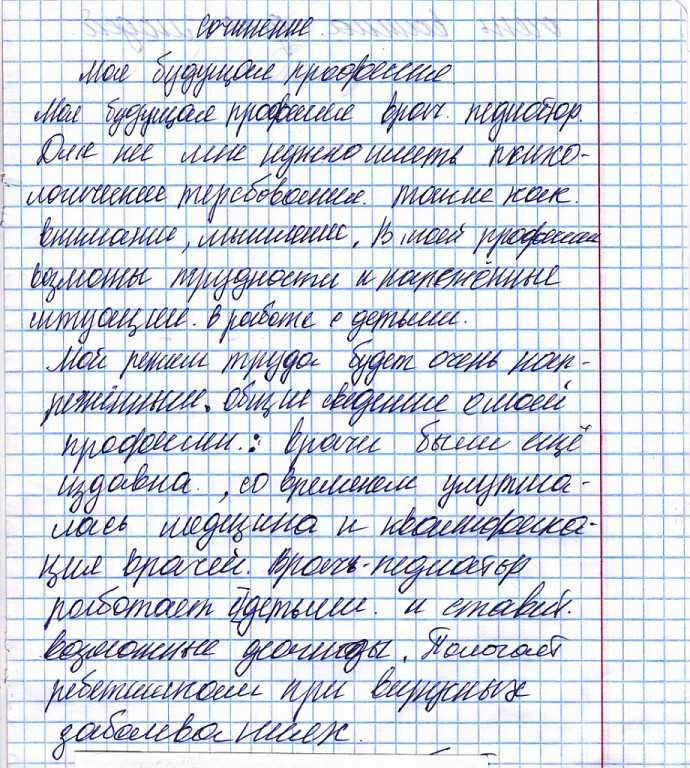 сочинение
Моя будущая профессия
Моя будущая профессия врач. педиатор.
Для неё мне нужно иметь психо-
логические терсбования. такие как.
внимание, мышление. В моей професии
возможны трудности и напрежённые
ситуации. в работе с детьми.
Мой режим труда будет очень нап-
режённым. Общие сведение о моей
професии.: врачи были ещё
издавна., со временем улутша-
лась медицина и квалифика-
ция врачей. Врачь-педиатор
работает с детьми. и ставит.
возможные диагнозы. Помогает
ребетишкам при вирусных
заболеваниях.